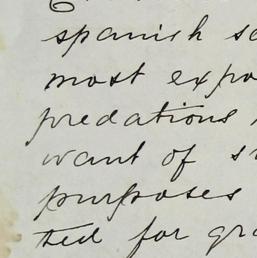 spanish
most expo
predations
want of
purposes
ted for gra